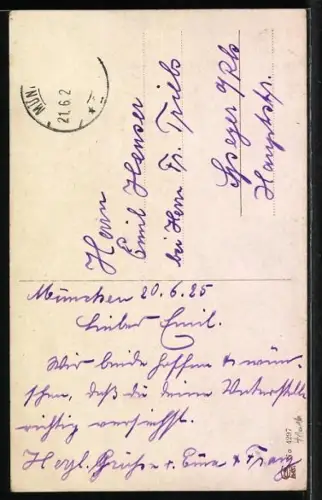 MÜN
21.6.2
Herrn
Emil Hauser
bei Herrn Fr. Triebs
Speyer a/Rh
Hauptstr.
München 20.6.25
Lieber Emil.
Wir beide hoffen & wün-
schen, daß du deine
richtig versiehst.
Herzl. Grüße v. & Franz
No 4297